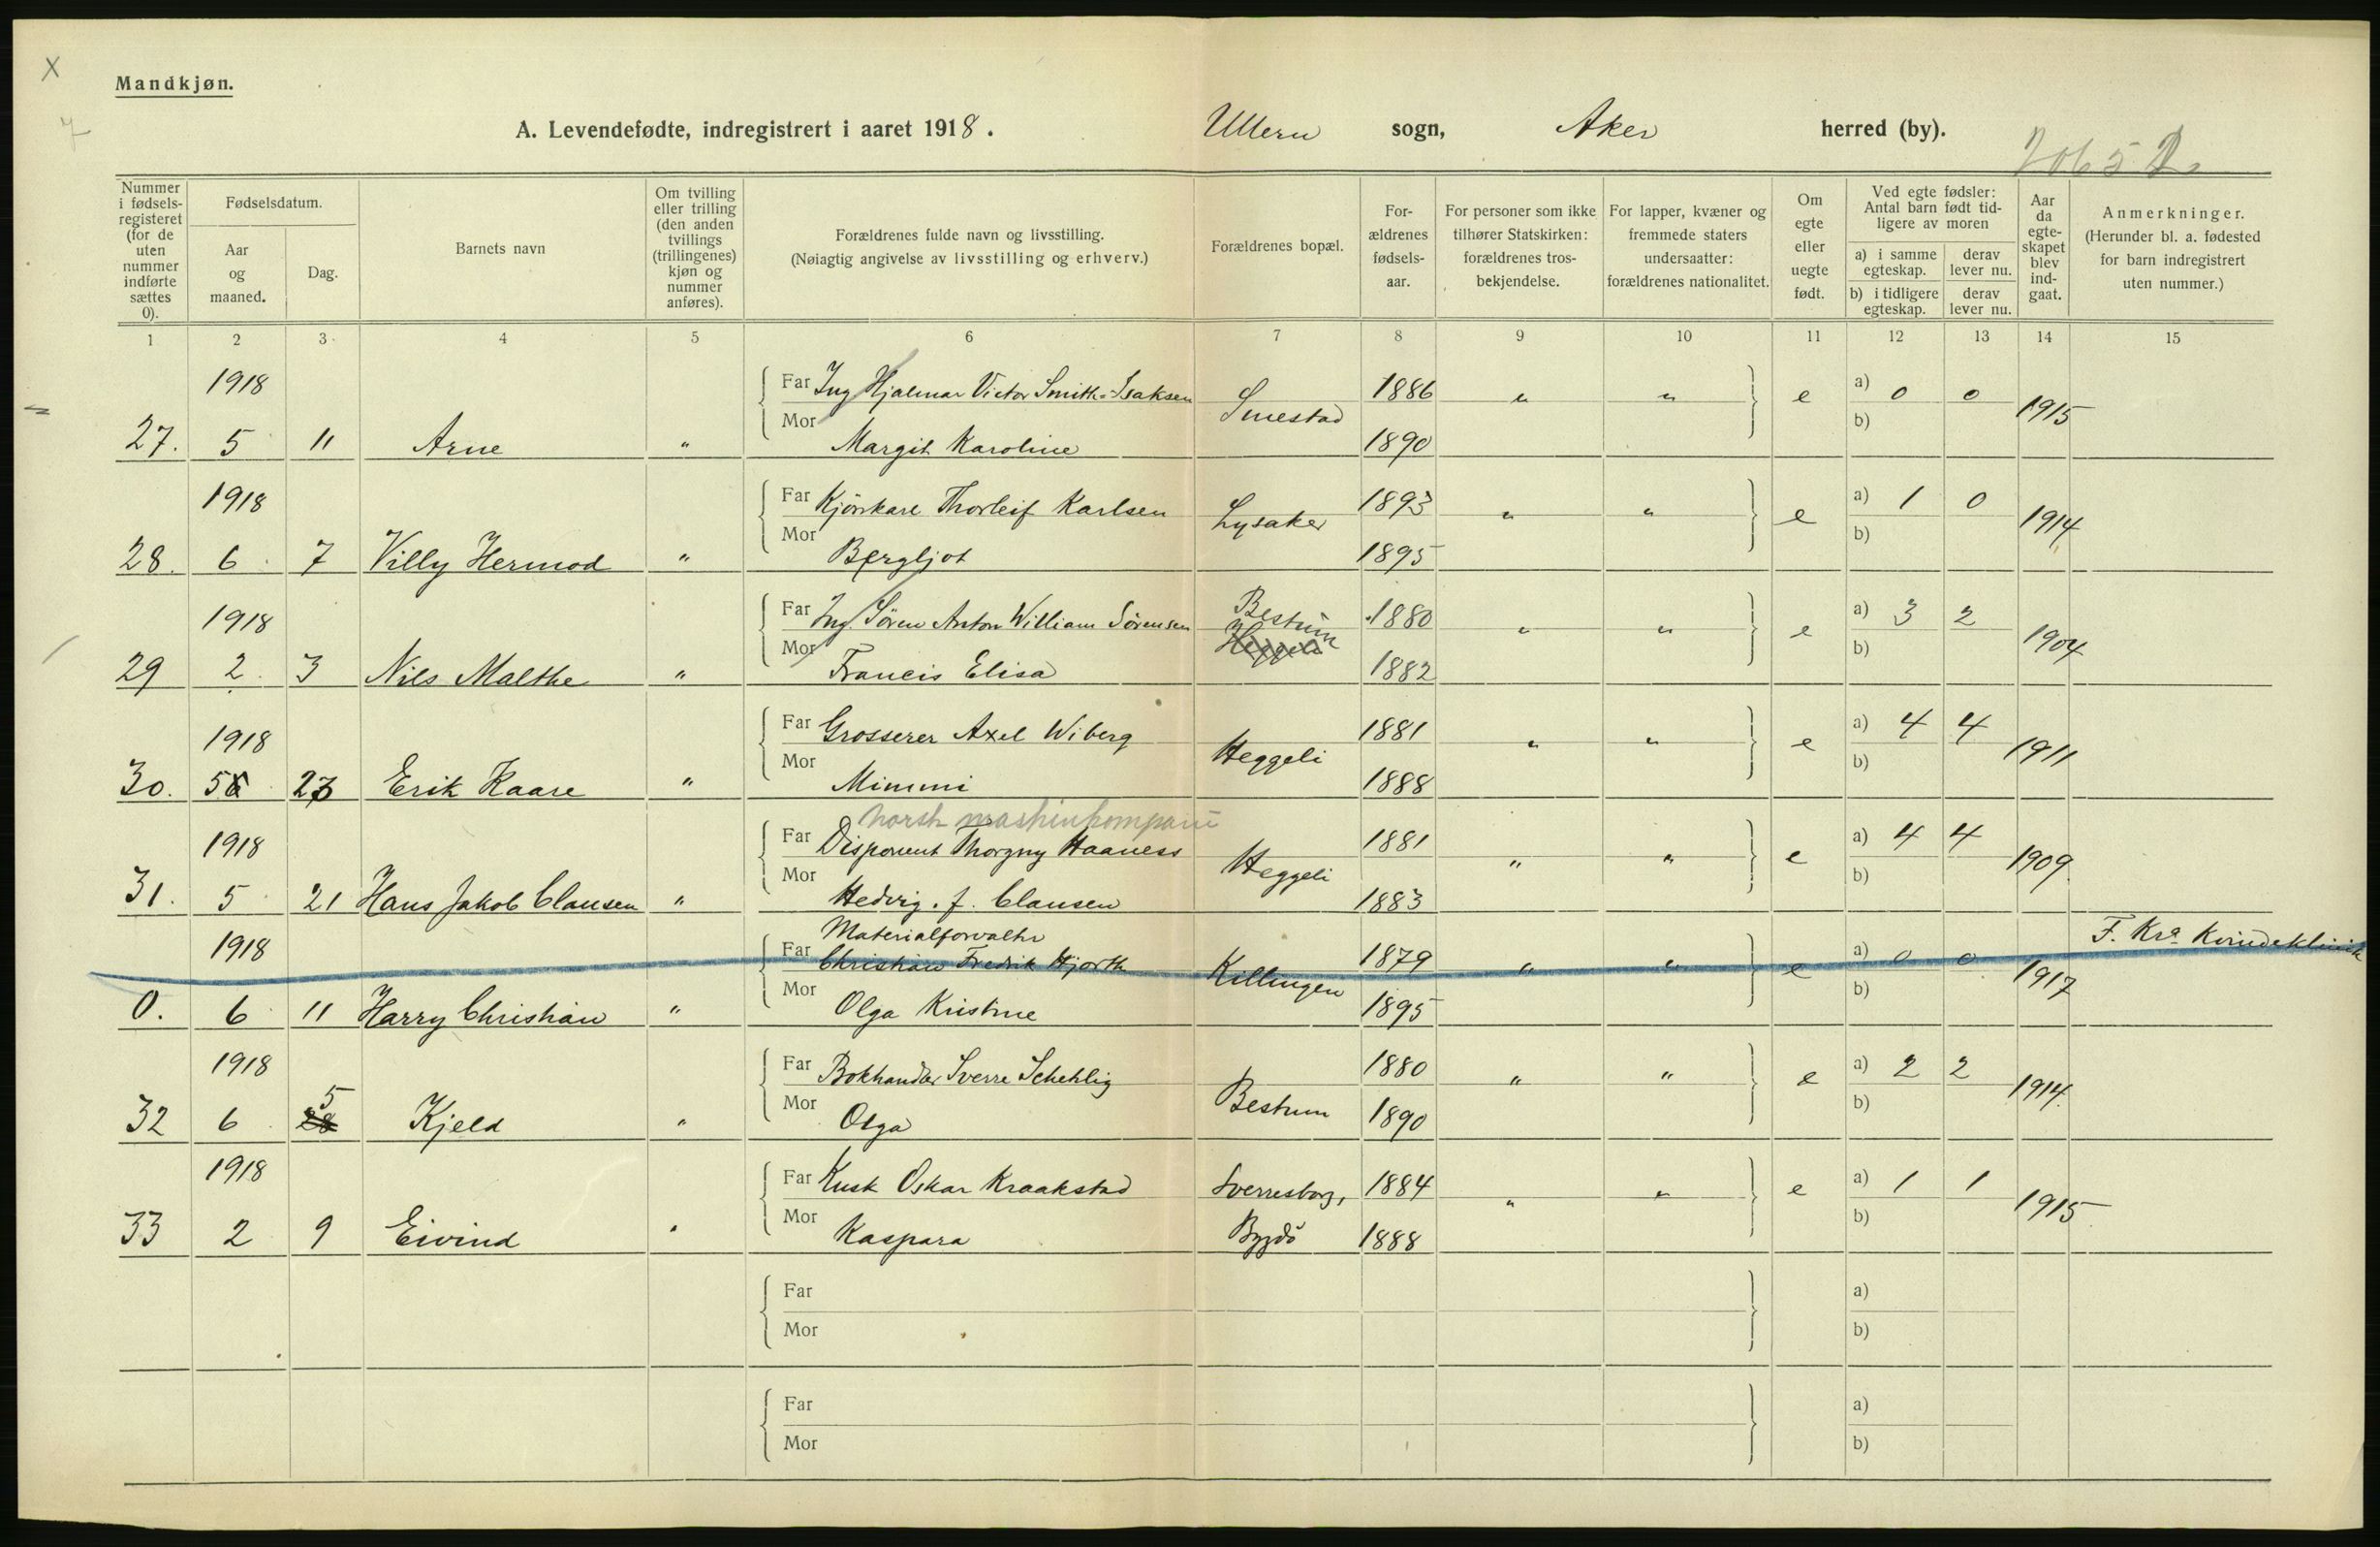 Mandkjøn.
A. Levendefødte, indregistrert i aaret 1918. Ullern sogn, Aker herred (by).
Nummer i fødsels-registeret (for de uten nummer indførte sættes 0).
Fødselsdatum.
Aar og maaned.
Dag.
Barnets navn
Om tvilling eller trilling (den anden tvillings (trillingenes) kjøn og nummer anføres).
Forældrenes fulde navn og livsstilling.
(Nøiagtig angivelse av livsstilling og erhverv.)
Forældrenes bopæl.
For-ældrenes fødsels-aar.
For personer som ikke tilhører Statskirken: forældrenes tros-bekjendelse.
For lapper, kvæner og fremmede staters undersaatter: forældrenes nationalitet.
Om egte eller uegte født.
Ved egte fødsler: Antal barn født tid-ligere av moren
a) i samme egteskap. derav lever nu.
b) i tidligere egteskap. derav lever nu.
Aar da egte-skapet blev ind-gaat.
Anmerkninger.
(Herunder bl. a. fødested for barn indregistrert uten nummer.)
1 2 3 4 5 6 7 8 9 10 11 12 13 14 15
1918 Far Ing Hjalmar Victor Smith=Isaksen Smestad 1886 " " e a) 0 0 1915
27. 5 11 Arne " Mor Margit Karoline 1890 b)
1918 Far Kjørekarl Thorleif Karlsen Lysaker 1893 " " e a) 1 0 1914
28. 6 7 Villy Hermod " Mor Bergljot 1895 b)
1918 Far Ing. Søren Anton William Sørensen Bestum 1880 " " e a) 3 2 1904
Heggeli
29 2 3 Nils Malthe " Mor Francis Elisa 1882 b)
1918 Far Grosserer Axel Wiberg Heggeli 1881 " " e a) 4 4 1911
30. 5 23 Erik Kaare " Mor Mimmi 1888 b)
norsk maskinkompani
1918 Far Disponent Thorgny Haaness Heggeli 1881 " " e a) 4 4 1909
31. 5 21 Hans Jakob Clausen " Mor Hedvig. f. Clausen 1883 b)
Materialforvalter
1918 Far Christian Fredrik Hjorth Killingen 1879 " " e a) 0 0 1917 F. Kra Kvindeklinik
0. 6 11 Harry Christian " Mor Olga Kristine 1895 b)
1918 Far Bokhandler Sverre Schehlig Bestum 1880 " " e a) 2 2 1914
5
32 6 28 Kjeld " Mor Olga 1890 b)
1918 Far Kusk Oskar Kraakstad Sverresborg, 1884 " " e a) 1 1 1915
33 2 9 Eivind " Mor Kaspara Bygdö 1888 b)
Far a)
Mor b)
Far a)
Mor b)